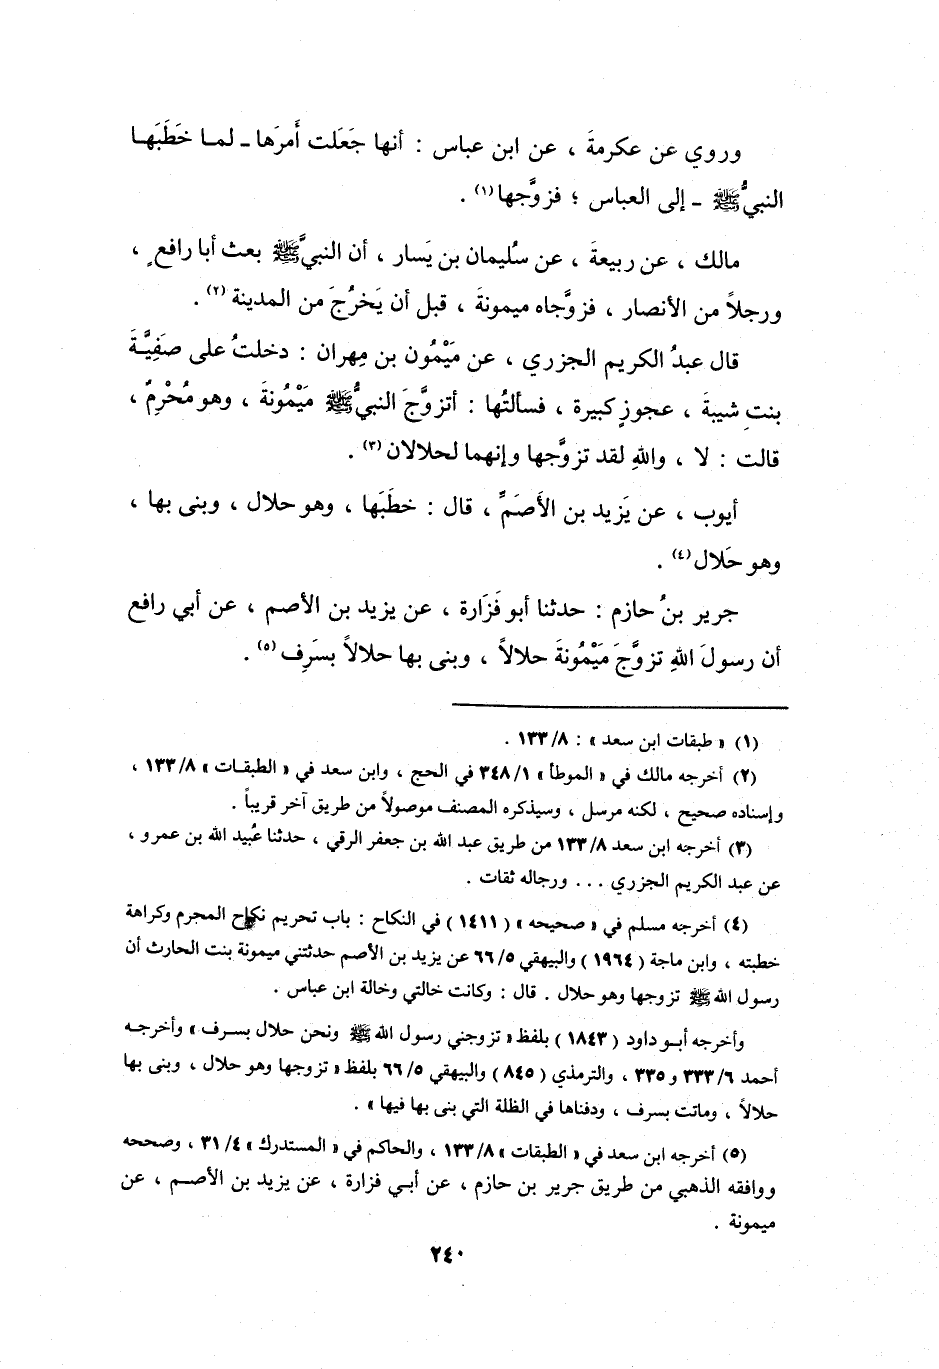 وروي عن عكرمةَ ، عن ابن عباس : أنها جَعَلت أَمرَها ـ لمـا خَطَبَهـا
النبيُّ ﷺ ـ إلى العباس ؛ فزوَّجها(١) .
مالك ، عن ربيعةَ ، عن سُليمان بن يَسار ، أن النبيَّ ﷺ بعث أبا رافعٍ ،
ورجلاً من الأنصار ، فزوَّجاه ميمونةَ ، قبل أن يَخرُجَ من المدينة (٢) .
قال عبدُ الكريم الجزري ، عن مَيْمُون بن مِهران : دخلتُ على صَفِيَّـةَ
بنتِ شيبةَ ، عجوزٍ كبيرة ، فسألتُها : أتزوَّجَ النبيُّ ﷺ مَيْمُونةَ ، وهو مُحْرِمٌ ،
قالت : لا ، واللهِ لقد تزوَّجها وإنهما لحلالان (٣) .
أيوب ، عن يَزيد بن الأَصَمِّ ، قال : خطَبَها ، وهو حلال ، وبنى بها ،
وهو حَلال(٤) .
جرير بنُ حازم : حدثنا أبو فَزَارة ، عن يزيد بن الأصم ، عن أبي رافع
أن رسولَ اللهِ تزوَّجَ مَيْمُونةَ حلالاً ، وبنى بها حلالاً بسَرِف (٥) .
(١) « طبقات ابن سعد » : ١٣٣/٨ .
(٢) أخرجه مالك في « الموطأ » ٣٤٨/١ في الحج ، وابن سعد في « الطبقـات » ١٣٣/٨ ،
وإسناده صحيح ، لكنه مرسل ، وسيذكره المصنف موصولاً من طريق آخر قريباً .
(٣) أخرجه ابن سعد ١٣٣/٨ من طريق عبد الله بن جعفر الرقي ، حدثنا عُبيد الله بن عمرو ،
عن عبد الكريم الجزري ... ورجاله ثقات .
(٤) أخرجه مسلم في « صحيحه » ( ١٤١١ ) في النكاح : باب تحريم نكاح المحرم وكراهة
خطبته ، وابن ماجة ( ١٩٦٤ ) والبيهقي ٦٦/٥ عن يزيد بن الأصم حدثتني ميمونة بنت الحارث أن
رسول الله ﷺ تزوجها وهو حلال . قال : وكانت خالتي وخالة ابن عباس .
وأخرجه أبـو داود ( ١٨٤٣ ) بلفظ « تزوجني رسول الله ﷺ ونحن حلال بسرف » وأخرجـه
أحمد ٣٣٣/٦ و ٣٣٥ ، والترمذي ( ٨٤٥ ) والبيهقي ٦٦/٥ بلفظ « تزوجها وهو حلال ، وبنى بها
حلالاً ، وماتت بسرف ، ودفناها في الظلة التي بنى بها فيها » .
(٥) أخرجه ابن سعد في « الطبقات » ١٣٣/٨ ، والحاكم في « المستدرك » ٣١/٤ ، وصححه
ووافقه الذهبي من طريق جرير بن حازم ، عن أبـي فزارة ، عن يزيد بن الأصـم ، عن
ميمونة .
٢٤٠